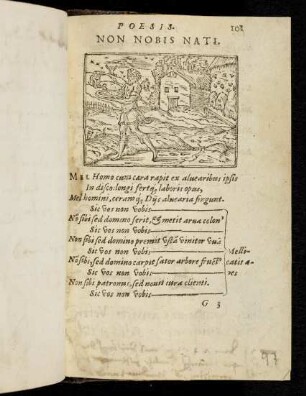 POESIS.
101
NON NOBIS NATI.
MEL Homo cum cera rapit ex aluearibus ipsis
In disco longi fertq́; laboris opus,
Mel homini, ceramq́; Dijs aluearia fregunt.
Sic vos non vobis
Nō sibi sed domino serit, & metit arua colon9
Sic vos non vobis
Non sibi sed domino premit vinitor
Sic vos non vobis
Nō sibi, sed domino carpit sator arbore
Sic vos non vobis
Non sibi patronus, sed nouit iura clienti.
Sic vos non vobis
Melli-
catis a-
pes
G 3
97